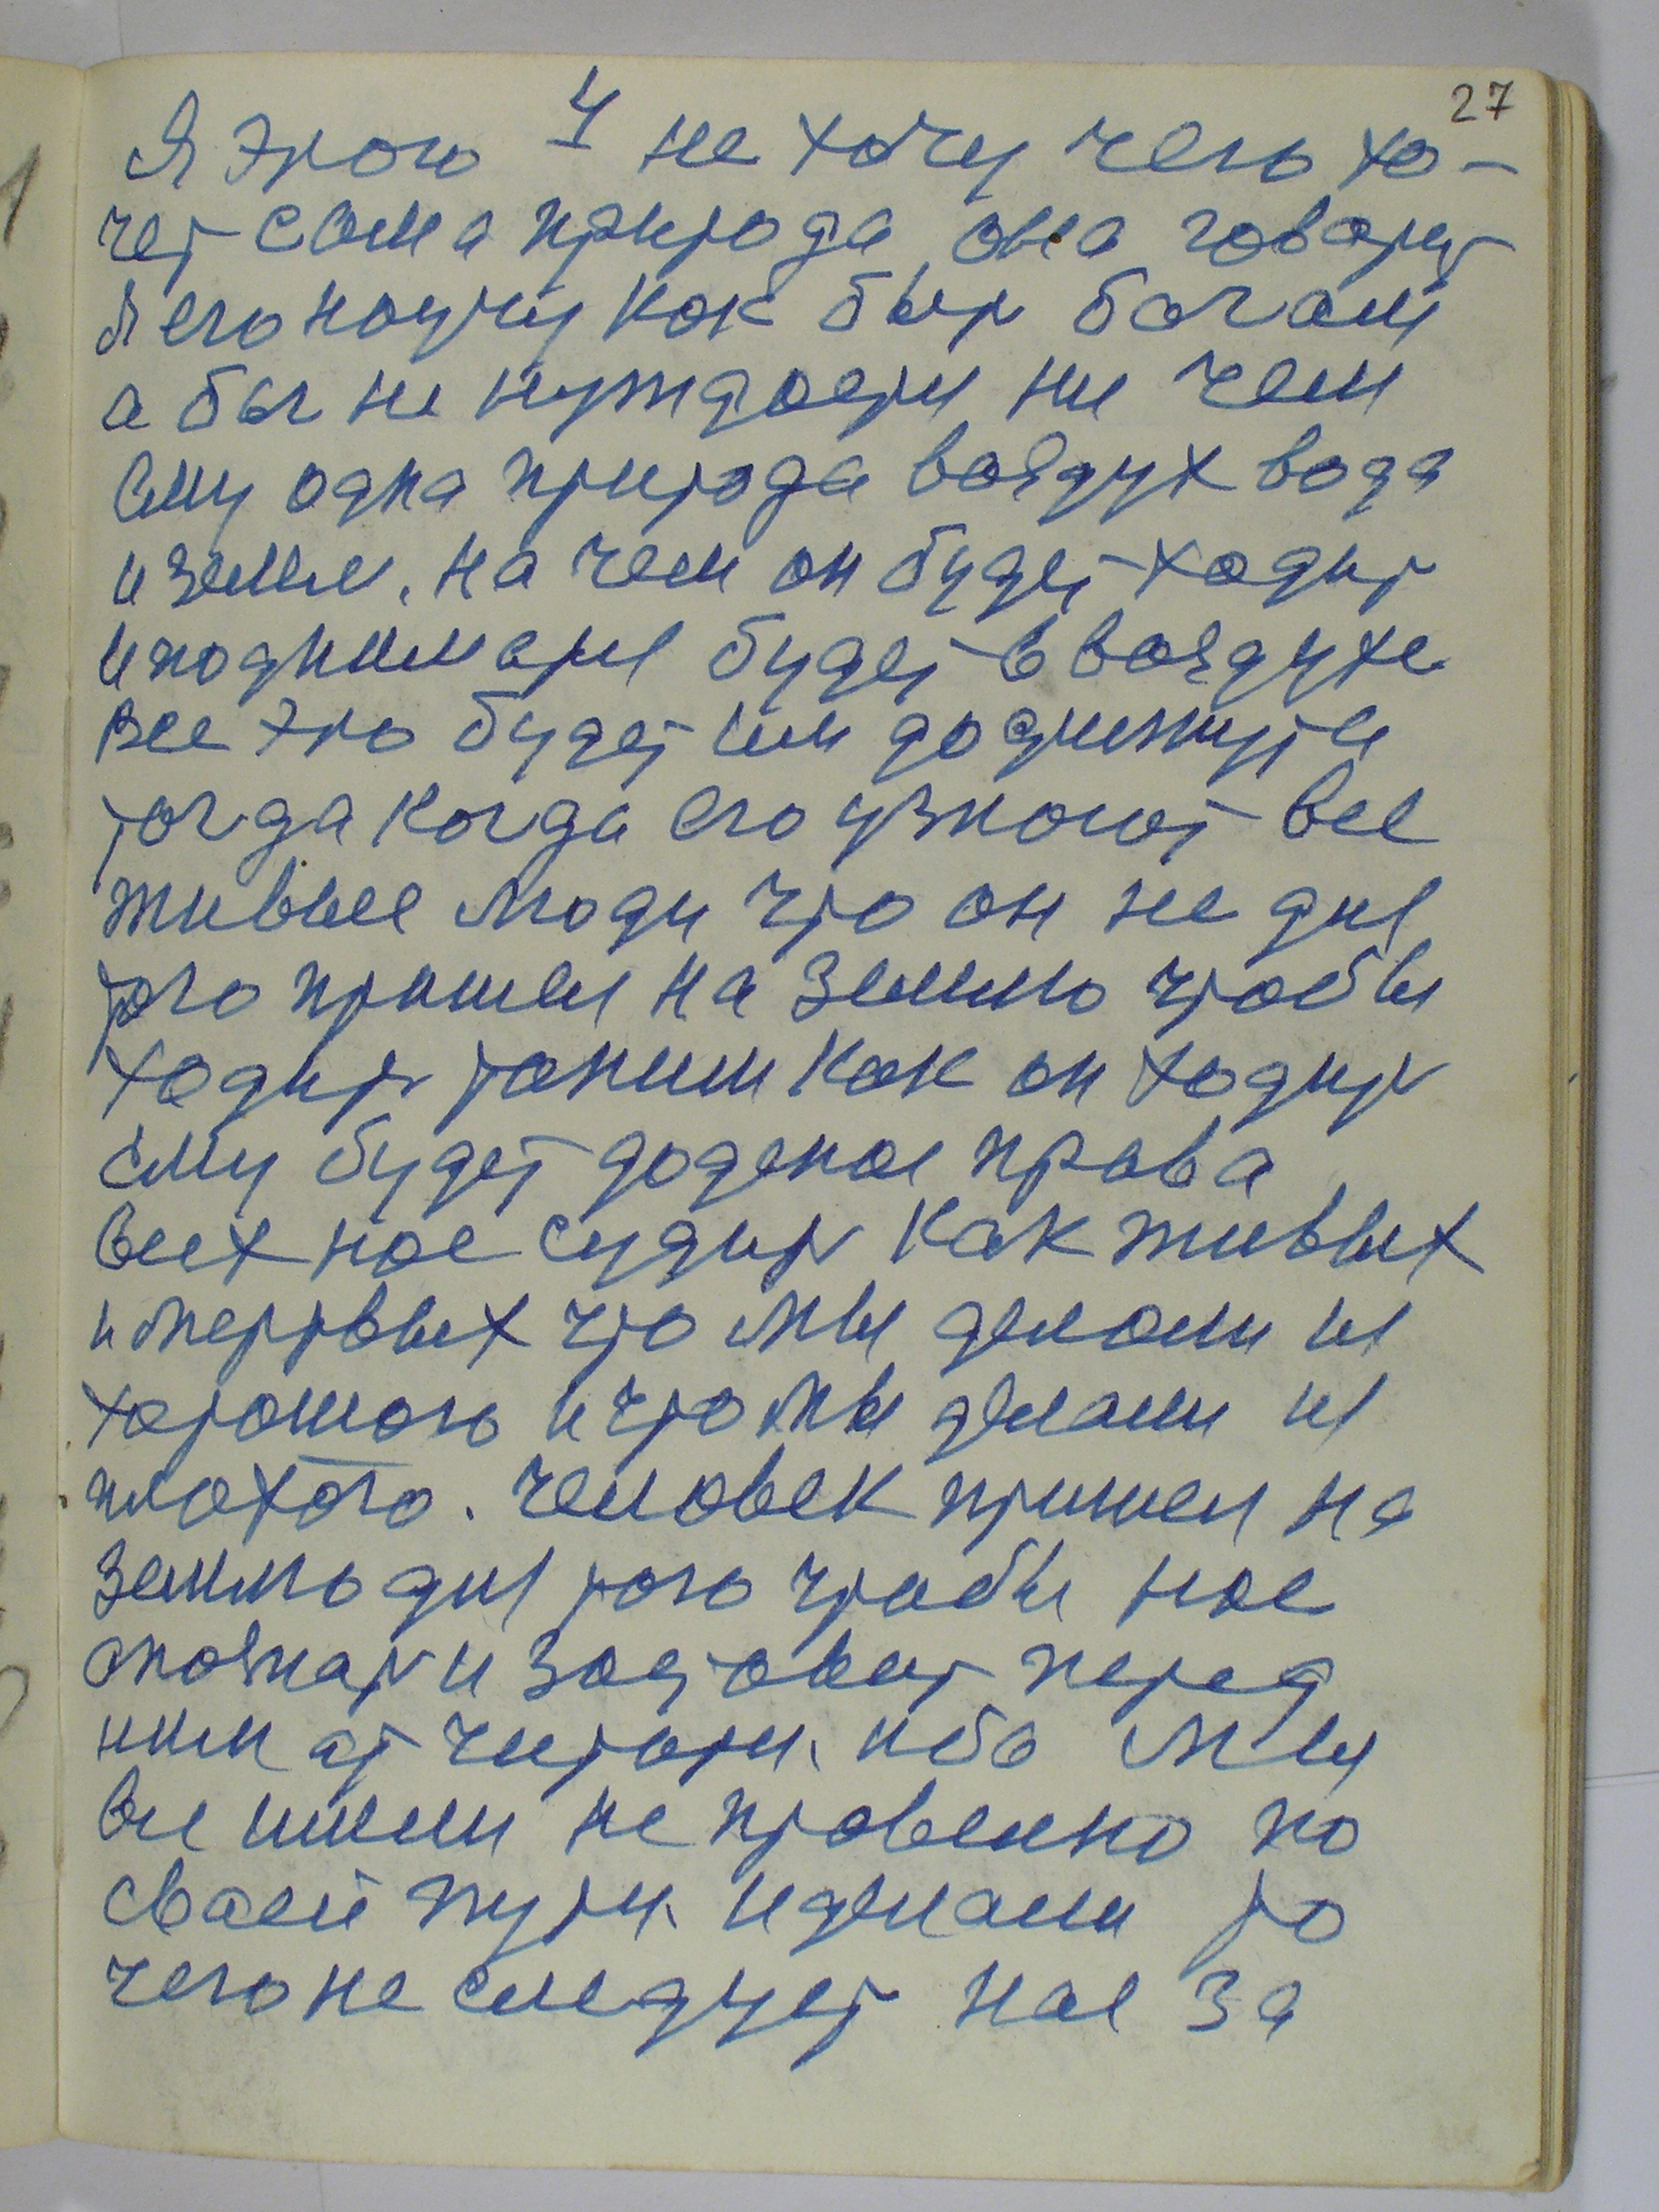 27
4
Я этого не хочу чего хо-
чет сама природа она говорит
я его научу как быт богом
а бог не нуждается ни чем
ему одна природа воздух вода
и земля, на чем он будет ходит
и подниматся будет в воздухе
все это будет им достигнуто
тогда когда его узнают все
живые люди что он не для
того пришел на землю чтобы
ходит таким как он ходит
ему будет дадено права
всех нас судит как живых
и мертвых что мы делали из
хорошого и что мы делали из
плохого. Человек пришел на
землю для того чтобы нас
опознат и заставит перед
ним отчитатся, ибо мы
все шли не правелно по
своей пути, и делали то
чего не следует нас за